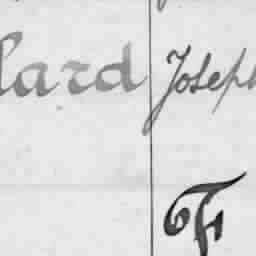 lard Joseph
F